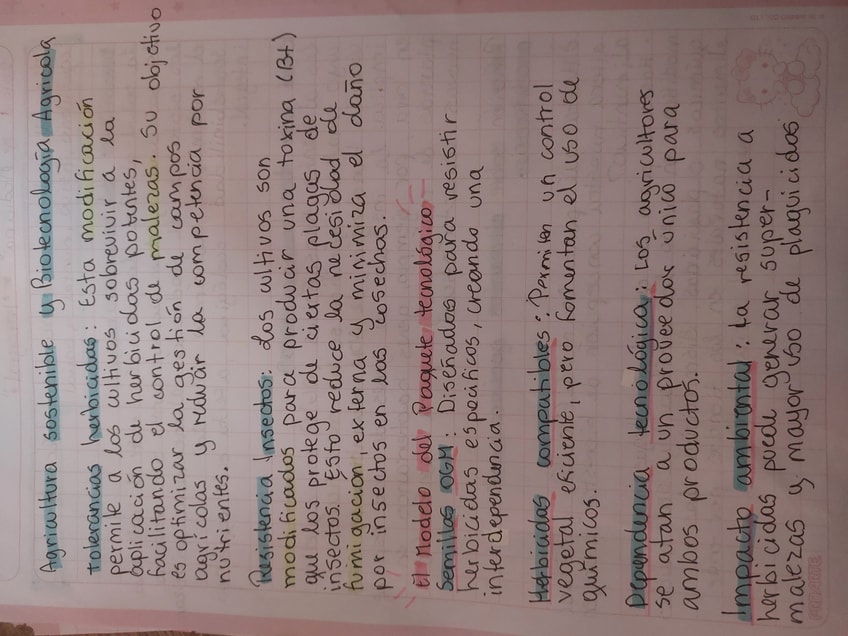 Agricultura sostenible y Biotecnología Agrícola
tolerancias herbicidas: Esta modificación
permite a los cultivos sobrevivir a la
aplicación de herbicidas potentes,
facilitando el control de malezas. Su objetivo
es optimizar la gestión de campos
agrícolas y reducir la competencia por
nutrientes.
Resistencia Insectos: Los cultivos son
modificados para producir una toxina (Bt)
que los protege de ciertas plagas de
insectos. Esto reduce la necesidad de
fumigación externa y minimiza el daño
por insectos en las cosechas.
El Modelo del Paquete tecnológico
Semillas OGM: Diseñados para resistir
herbicidas específicos, creando una
interdependencia.
Herbicidas compatibles: Permiten un control
vegetal eficiente, pero fomentan el uso de
químicos.
Dependencia tecnológica: Los agricultores
se atan a un proveedor único para
ambos productos.
Impacto ambiental: La resistencia a
herbicidas puede generar super-
malezas y mayor uso de plaguicidas